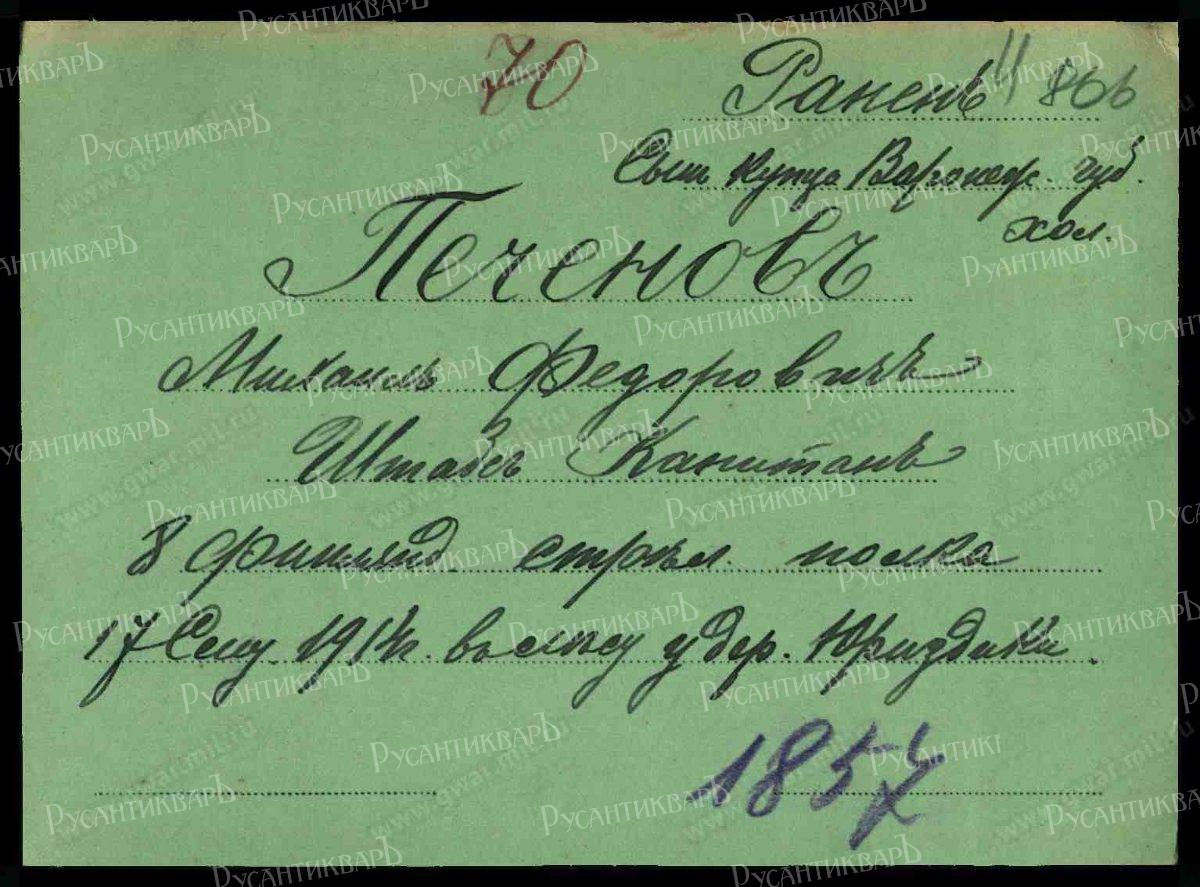 70
Раненъ 11 866
Сынъ купца Воронеж. губ.
хол.
Печеновъ
Михаилъ Федоровичъ
Штабсъ Капитанъ
8 финлянд. стрѣл. полка
17 Сент. 1914 г. въ лѣсу у дер. Юриздики.
1857
РусАнтикваръ
www.gwar.mil.ru